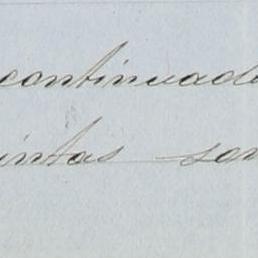 continuad
intas son